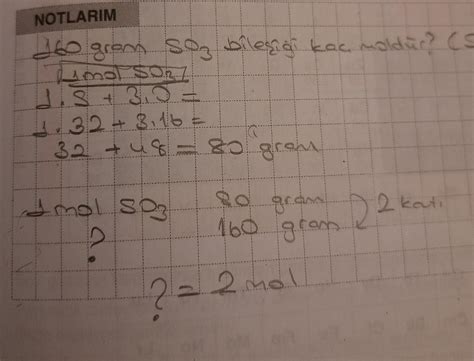 NOTLARIM
160 gram SO3 bileşiği kaç moldür? (S
1 mol SO3
1.S + 3.O =
1.32 + 3.16 =
32 + 48 = 80 gram
1 mol SO3 80 gram
? 160 gram 2 katı
? = 2 mol